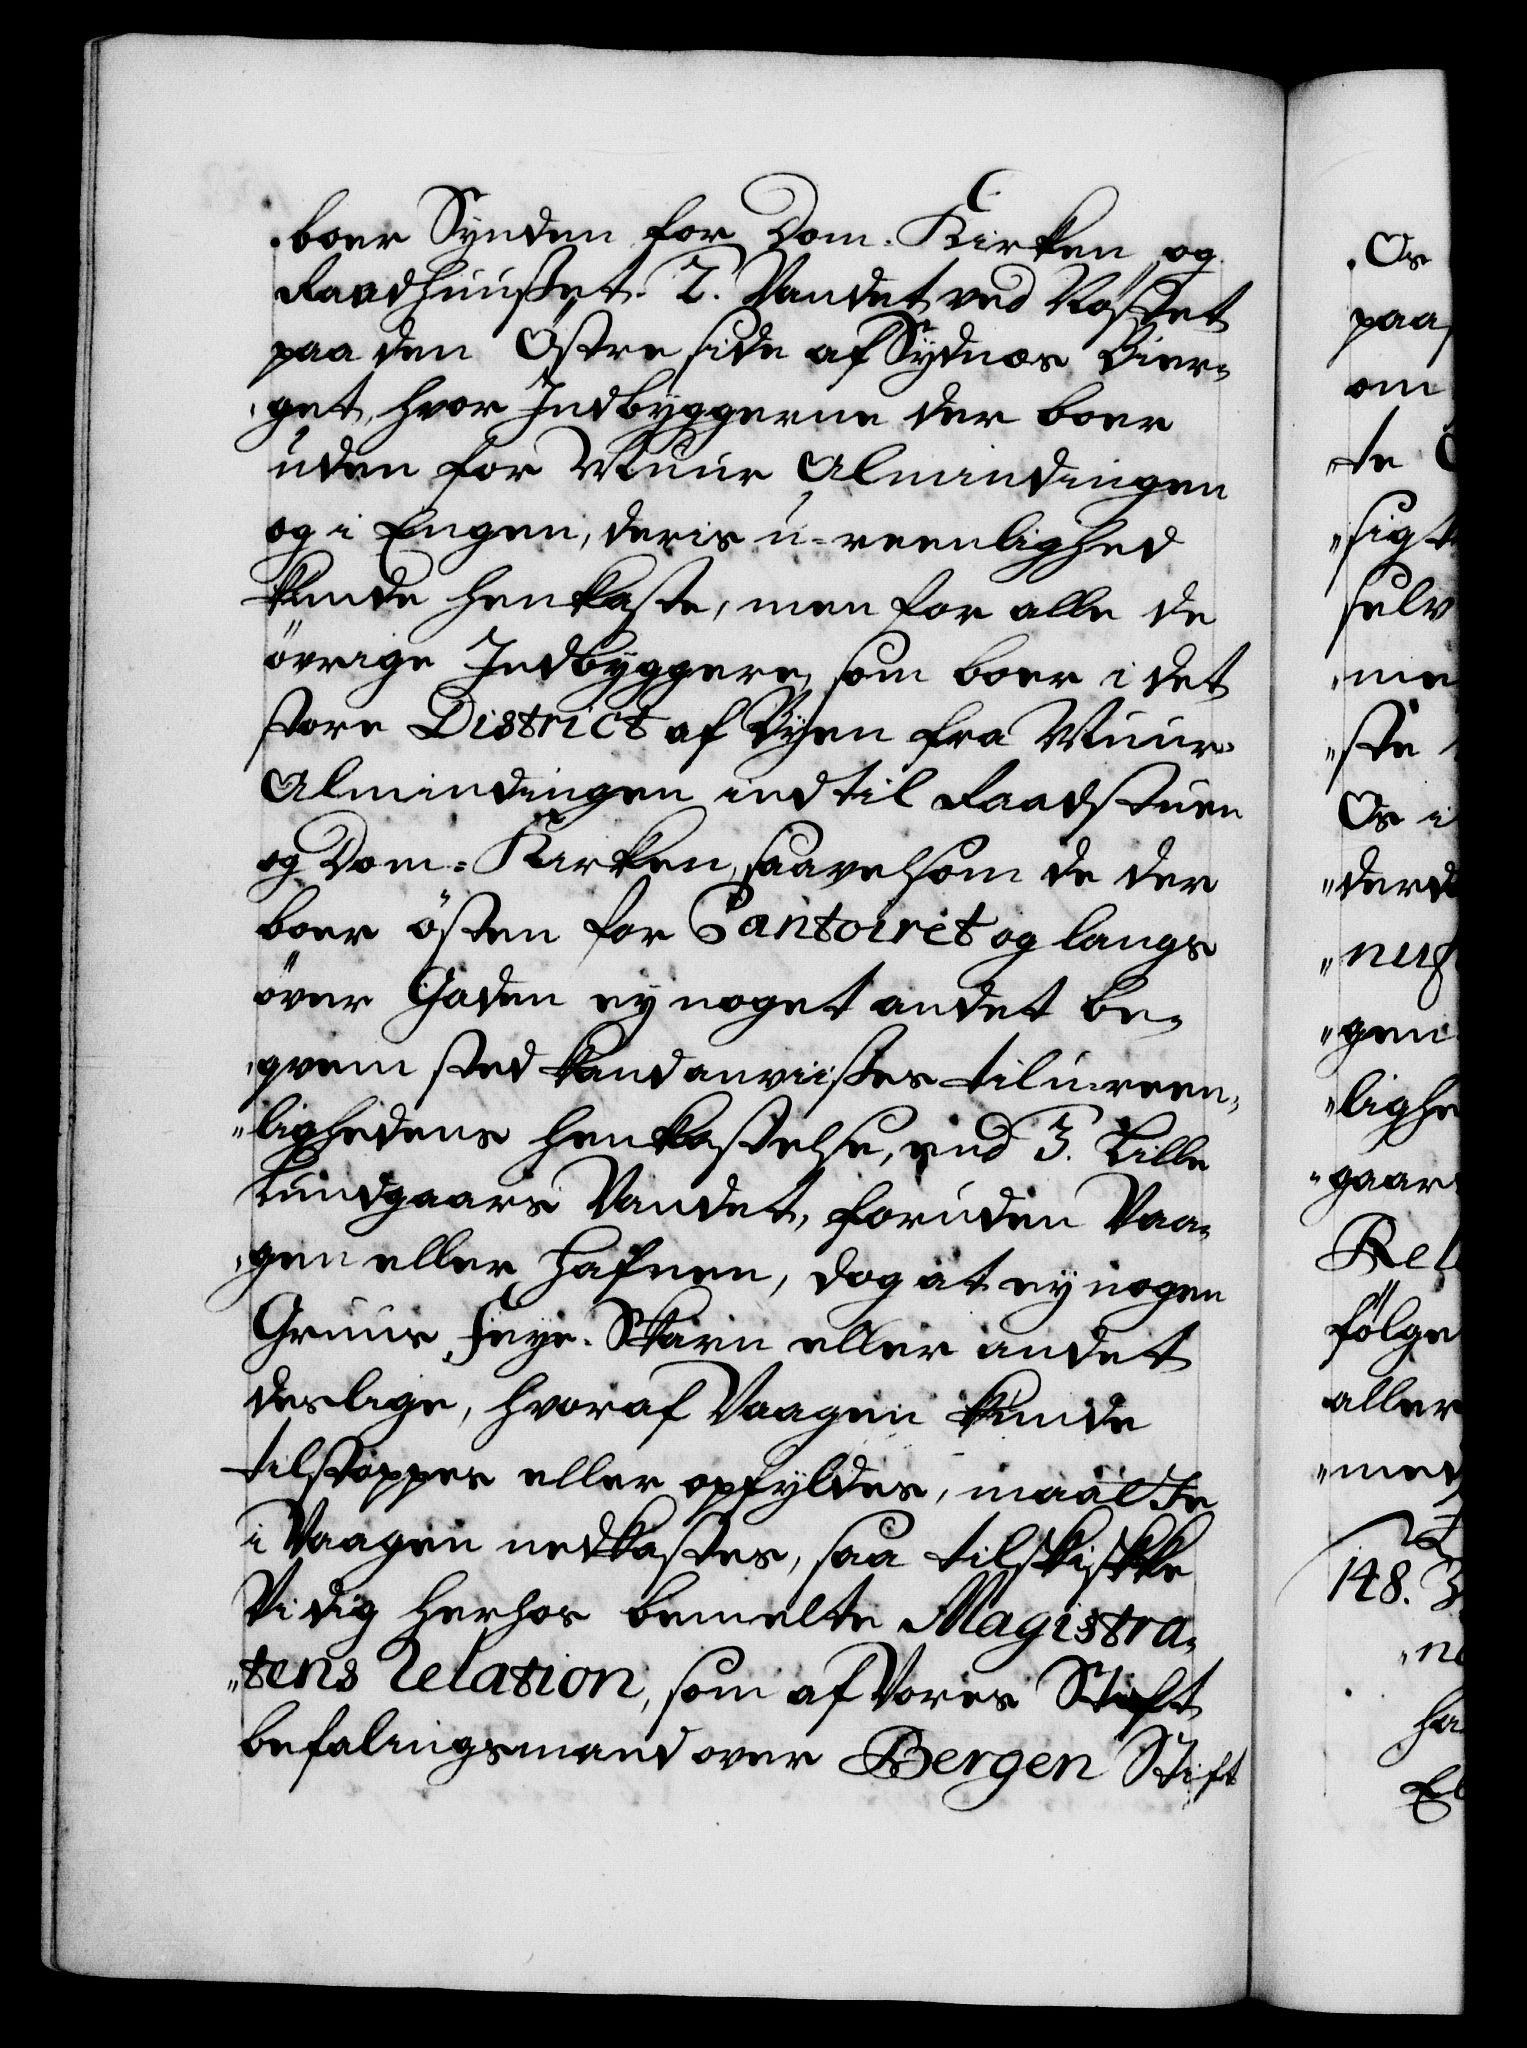 boer Synden for Dom-Kirken og
Raadhuusset. 2. Vandet ved Nøstet
paa den Östre side af Sydnes Bier-
get, hvor Indbyggerne der boer
uden for Muur Almindingen
og i Engen, deris u-reenlighed
kunde henkaste, men for alle de
övrige Indbyggere som boer i det
store District af Byen fra Muur-
Almindingen ind til Raadstuen
og Dom-Kirken, saavelsom de der
boer östen for Contoiret og langs
över Gaden ey noget andet be-
qvem sted kand anviisses til u-reen-
lighedens henkastelse, end 3. Lille
Lundgaars Vandet, foruden Vaa-
gen eller Hafnen, dog at ey nogen
Gruus, Feye-Skarn eller andet
deslige, hvoraf Vaagen kunde
tilstoppes eller opfyldes, maatte
i Vaagen nedkastes, saa tilskikke
Vi dig herhos bemelte Magistra-
tens Relation, som af Vores Stift
befalingsmand over Bergen Stift
Os
paa
om
te
sigt
selv
me
ste
Os i
derd
nuf
gen
lighe
gaar
Rel
fölge
aller
med
148.
ne
ha
El